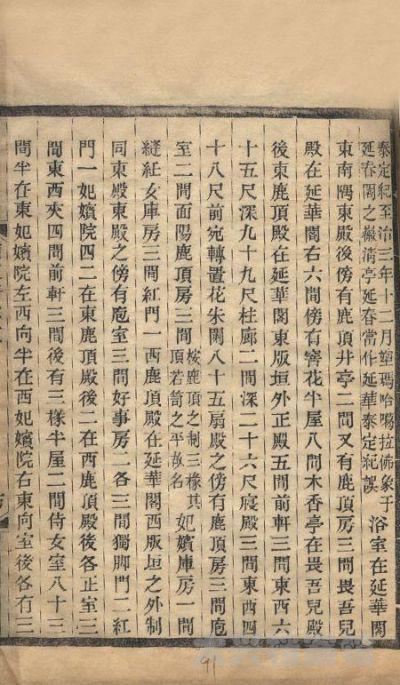 泰定紀至治三年十二月塑瑪哈噶拉佛象于
延春閣之徽清亭延春當作延華泰定紀誤
浴室在延華閣
東南隅東殿後傍有鹿頂井亭二間又有鹿頂房三間畏吾兒
殿在延華閣右六間傍有窨花半屋八間木香亭在畏吾兒殿
後東鹿頂殿在延華閣東版垣外正殿五間前軒三間東西六
十五尺深九十九尺柱廊二間深二十六尺寢殿三間東西四
十八尺前宛轉置花朱闌八十五扇殿之傍有鹿頂房三間庖
室二間面陽鹿頂房三間
桉鹿頂之制三椽其
頂若笥之平故名
妃嬪庫房一間
縫紅女庫房三間紅門一西鹿頂殿在延華閣西版垣之外制
同東殿東殿之傍有庖室三間好事房二各三間獨脚門二紅
門一妃嬪院四二在東鹿頂殿後二在西鹿頂殿後各正室三
間東西夾四間前軒三間後有三椽半屋二間侍女室八十三
間半在東妃嬪院左西向半在西妃嬪院右東向室後各有三